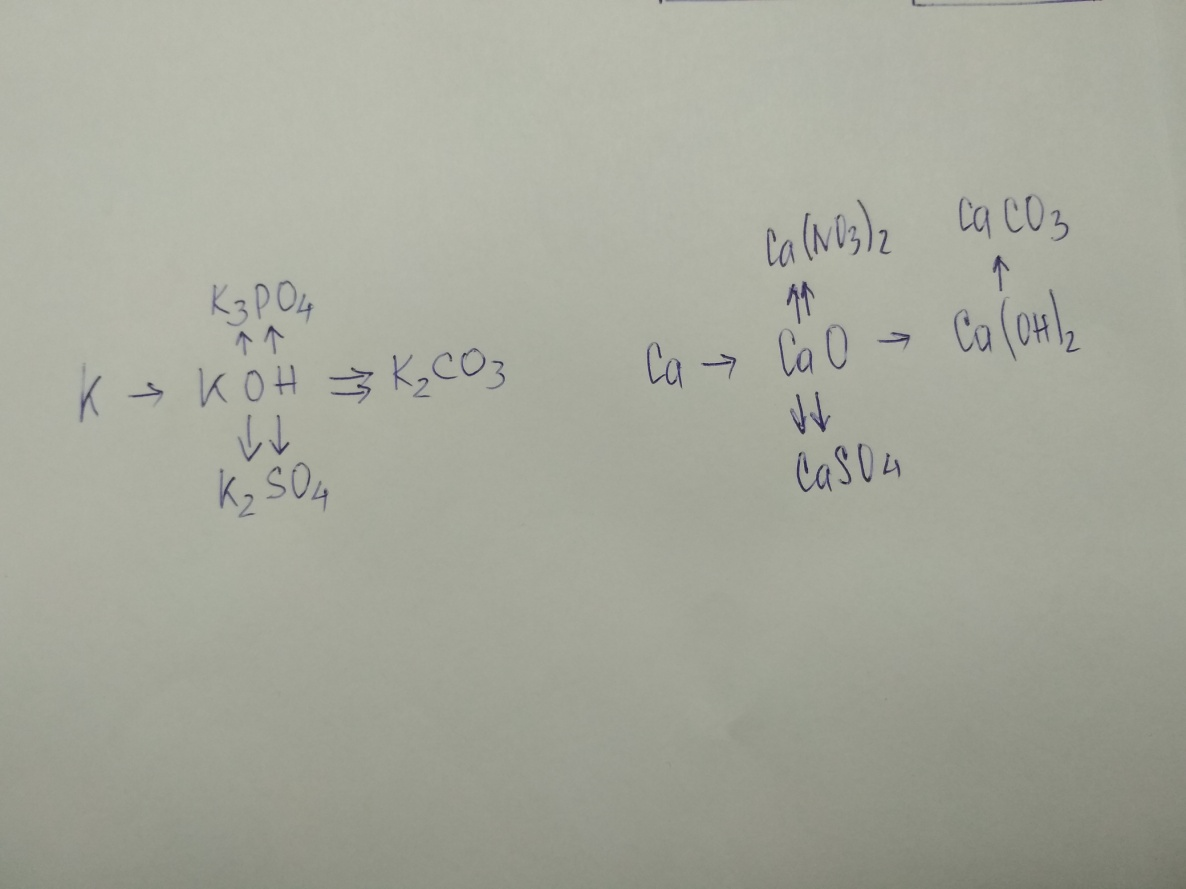 K₃PO₄
↑ ↑
K → KOH ⇉ K₂CO₃
↓ ↓
K₂SO₄
Ca(NO₃)₂ CaCO₃
↑↑ ↑
Ca → CaO → Ca(OH)₂
↓↓
CaSO₄